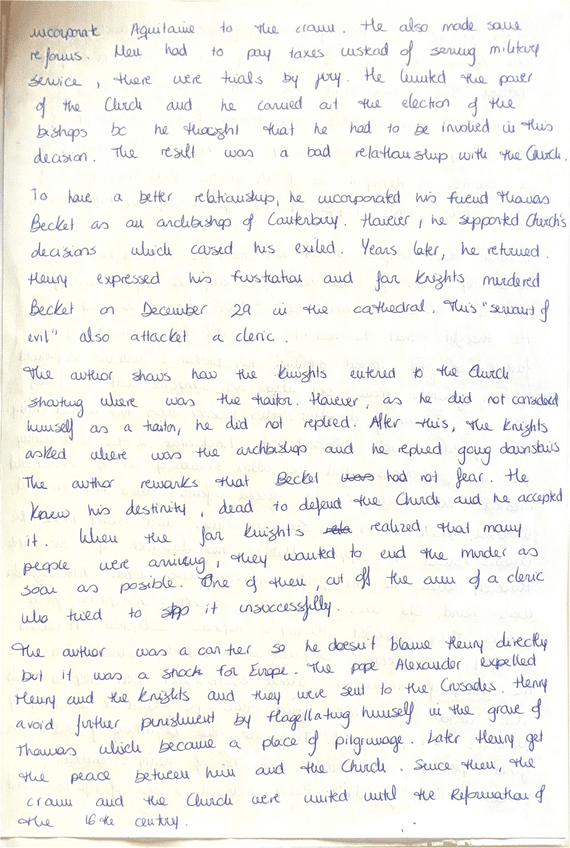 incorporate Aquitaine to the crown. He also made some
reforms. Men had to pay taxes instead of serving military
service, there were trials by jury. He limited the power
of the Church and he carried out the election of the
bishops bc he thought that he had to be involved in this
decision. The result was a bad relationship with the Church.
To have a better relationship, he incorporated his friend Thomas
Becket as an archbishop of Canterbury. However, he supported Church's
decisions which caused his exiled. Years later, he returned.
Henry expressed his frustration and four knights murdered
Becket on December 29 in the cathedral. This "servant of
evil" also attacket a cleric.
The author shows how the knights entered to the Church
shouting where was the traitor. However, as he did not considered
himself as a traitor, he did not replied. After this, the knights
asked where was the archbishop and he replied going downstairs
The author remarks that Becket had not fear. He
knew his destinity, dead to defend the Church and he accepted
it. When the four knights realized that many
people were arriving, they wanted to end the murder as
soon as possible. One of them, cut off the arm of a cleric
who tried to stop it unsuccessfully.
The author was a con her so he doesn't blame Henry directly
but it was a shock for Europe. The pope Alexander expelled
Henry and the knights and they were sent to the Crusades. Henry
avoid further punishment by flagellating himself in the grave of
Thomas which became a place of pilgrimage. Later Henry get
the peace between him and the Church. Since then, the
crown and the Church were united until the Reformation of
the 16the century.